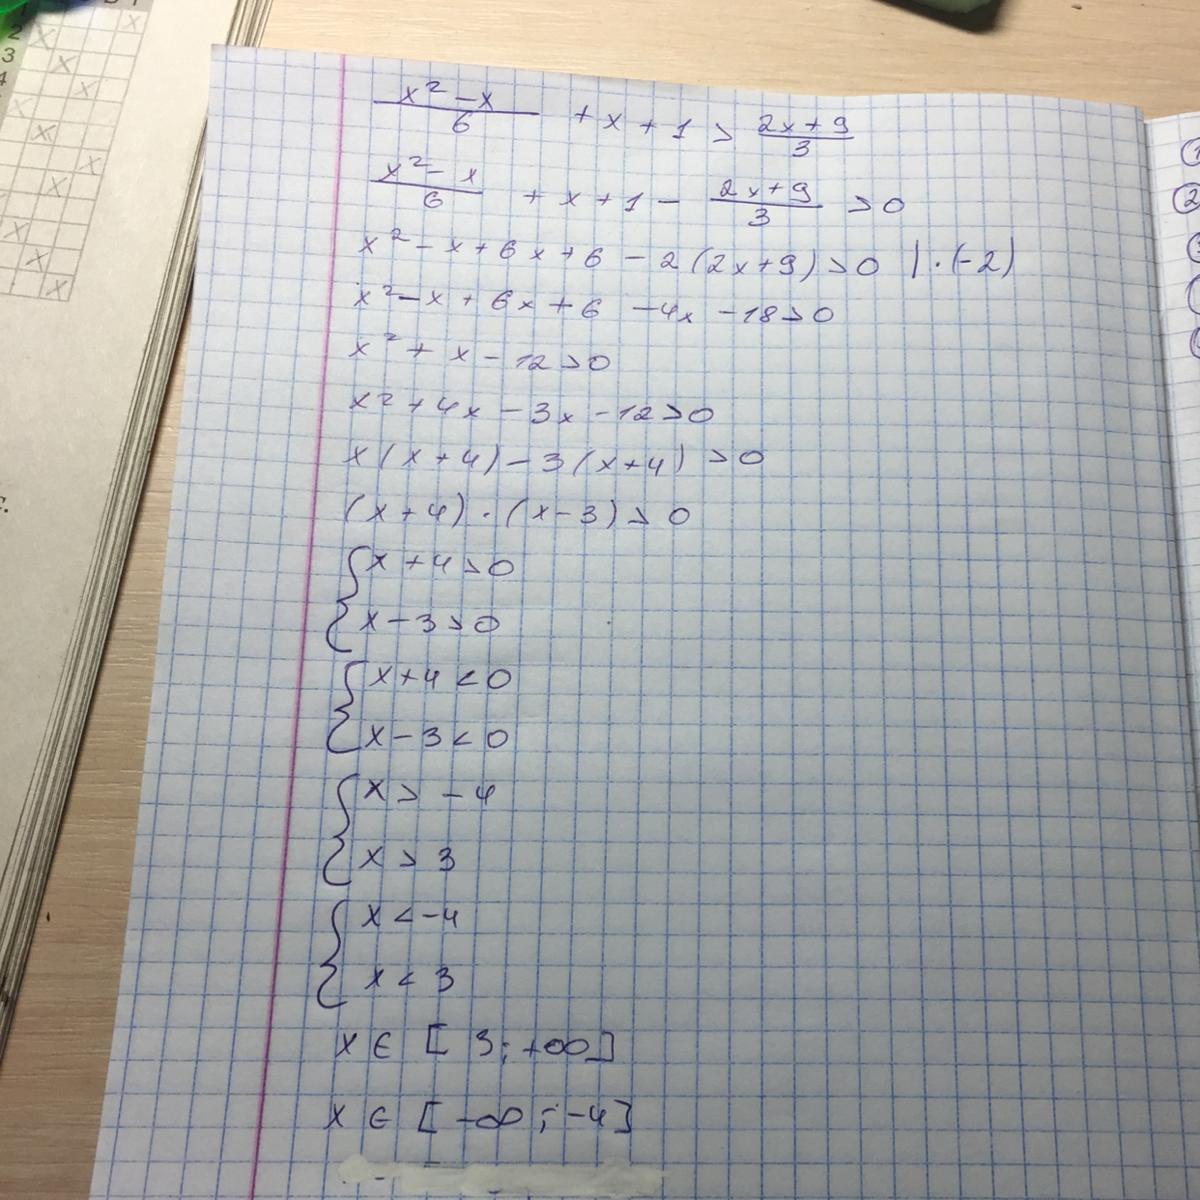 x² - x / 6 + x + 1 > 2x + 9 / 3
x² - x / 6 + x + 1 - 2x + 9 / 3 > 0
x² - x + 6x + 6 - 2(2x+9) > 0 | · (-2)
x² - x + 6x + 6 - 4x - 18 > 0
x² + x - 12 > 0
x² + 4x - 3x - 12 > 0
x(x+4) - 3(x+4) > 0
(x+4) · (x-3) > 0
{ x + 4 > 0
x - 3 > 0
{ x + 4 < 0
x - 3 < 0
{ x > -4
x > 3
{ x < -4
x < 3
x ∈ [3; +∞]
x ∈ [-∞; -4]